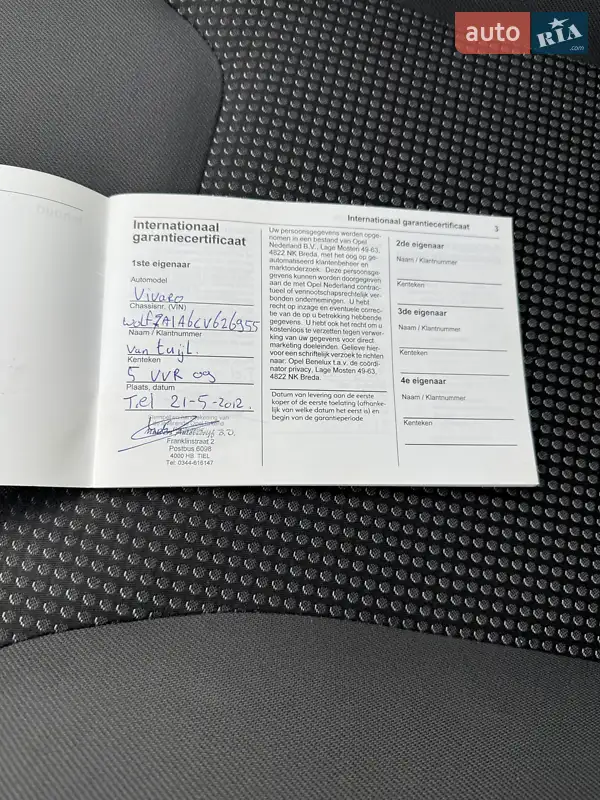 auto RIA .com
Internationaal garantiecertificaat 3
Internationaal
garantiecertificaat
1ste eigenaar
Automodel
Vivaro
Chassisnr. (VIN)
Naam / Klantnummer
van tuijl.
Kenteken
5 VVR 09
Plaats, datum
Tiel 21-5-2012.
Franklinstraat 2
Postbus 6098
4000 HB TIEL
Tel: 0344-616147
Uw persoonsgegevens werden opge-
nomen in een bestand van Opel
Nederland B.V., Lage Mosten 49-63,
4822 NK Breda, met het oog op ge-
automatiseerd klantenbeheer en
marktonderzoek. Deze persoonsge-
gevens kunnen worden doorgegeven
aan de met Opel Nederland contrac-
tueel of vennootschapsrechtelijk ver-
bonden ondernemingen. U hebt
recht op inzage en eventuele correc-
tie van de op u betrekking hebbende
gegevens. U hebt ook het recht om u
kosteloos te verzetten tegen verwer-
king van uw gegevens voor direct
marketing doeleinden. Gelieve hier-
voor een schriftelijk verzoek te richten
naar: Opel Benelux t.a.v. de coördi-
nator privacy, Lage Mosten 49-63,
4822 NK Breda.
Datum van levering aan de eerste
koper of de eerste toelating (afhanke-
lijk van welke datum het eerst is) en
begin van de garantieperiode.
2de eigenaar
Naam / Klantnummer
Kenteken
3de eigenaar
Naam / Klantnummer
Kenteken
4e eigenaar
Naam / Klantnummer
Kenteken